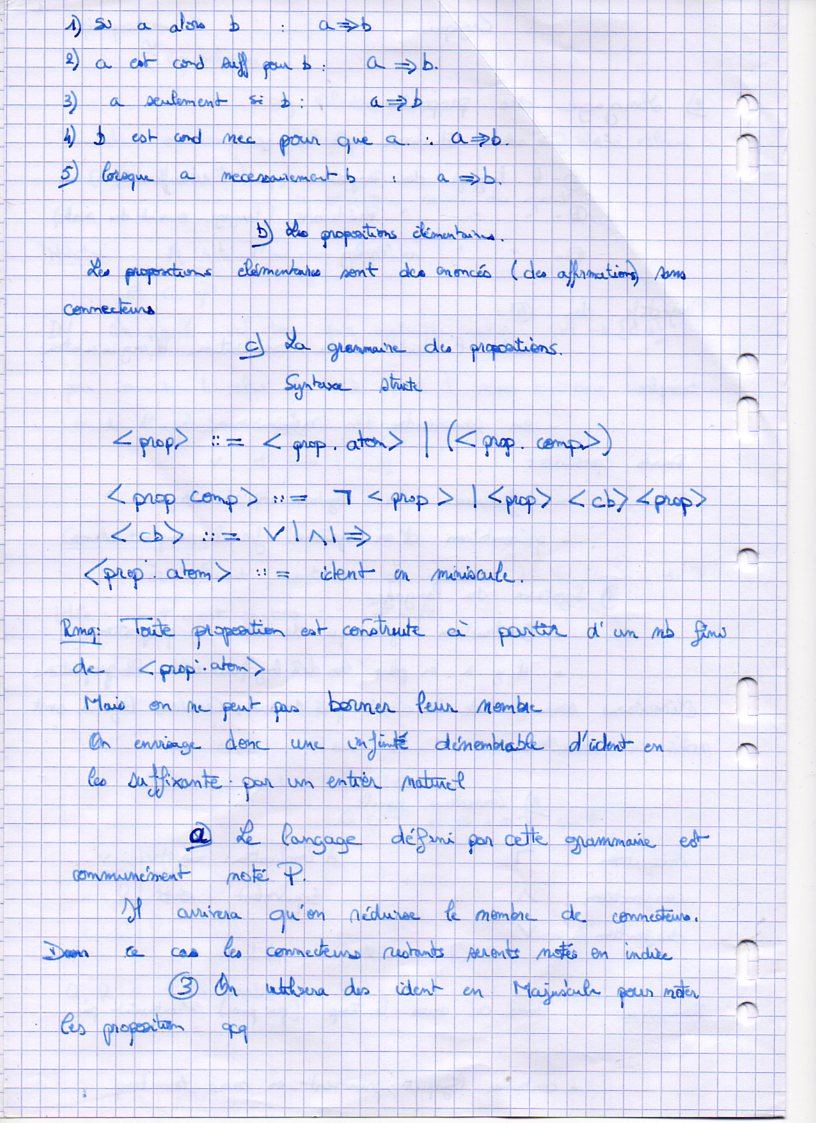 1) si a alors b : a ⇒ b
2) a est cond suff pour b : a ⇒ b.
3) a seulement si b : a ⇒ b
4) b est cond nec pour que a . : a ⇒ b.
5) lorsque a necessairement b : a ⇒ b.
b) Les propositions élémentaires.
Les propositions élémentaires sont des enoncés (des affirmations) sans
connecteurs
c) La grammaire des propositions.
Syntaxe stricte
<prop> ::= <prop. atom> | (<prop. comp>)
<prop comp> ::= ¬ <prop> | <prop> <cb> <prop>
<cb> ::= ∨ | ∧ | ⇒
<prop. atom> ::= ident en miniscule.
Rmq: Toute proposition est construite à partir d'un nb fini
de <prop. atom>
Mais on ne peut pas borner leur nombre
On envisage donc une infinté dénombrable d'ident en
les suffixante par un entier naturel
a) Le langage défini par cette grammaire est
communément noté P.
Il arrivera qu'on réduise le nombre de connecteurs.
Dans ce cas les connecteurs restants seronts notés en indice
3 On utilisera des ident en Majuscule pour noter
les proposition qcq